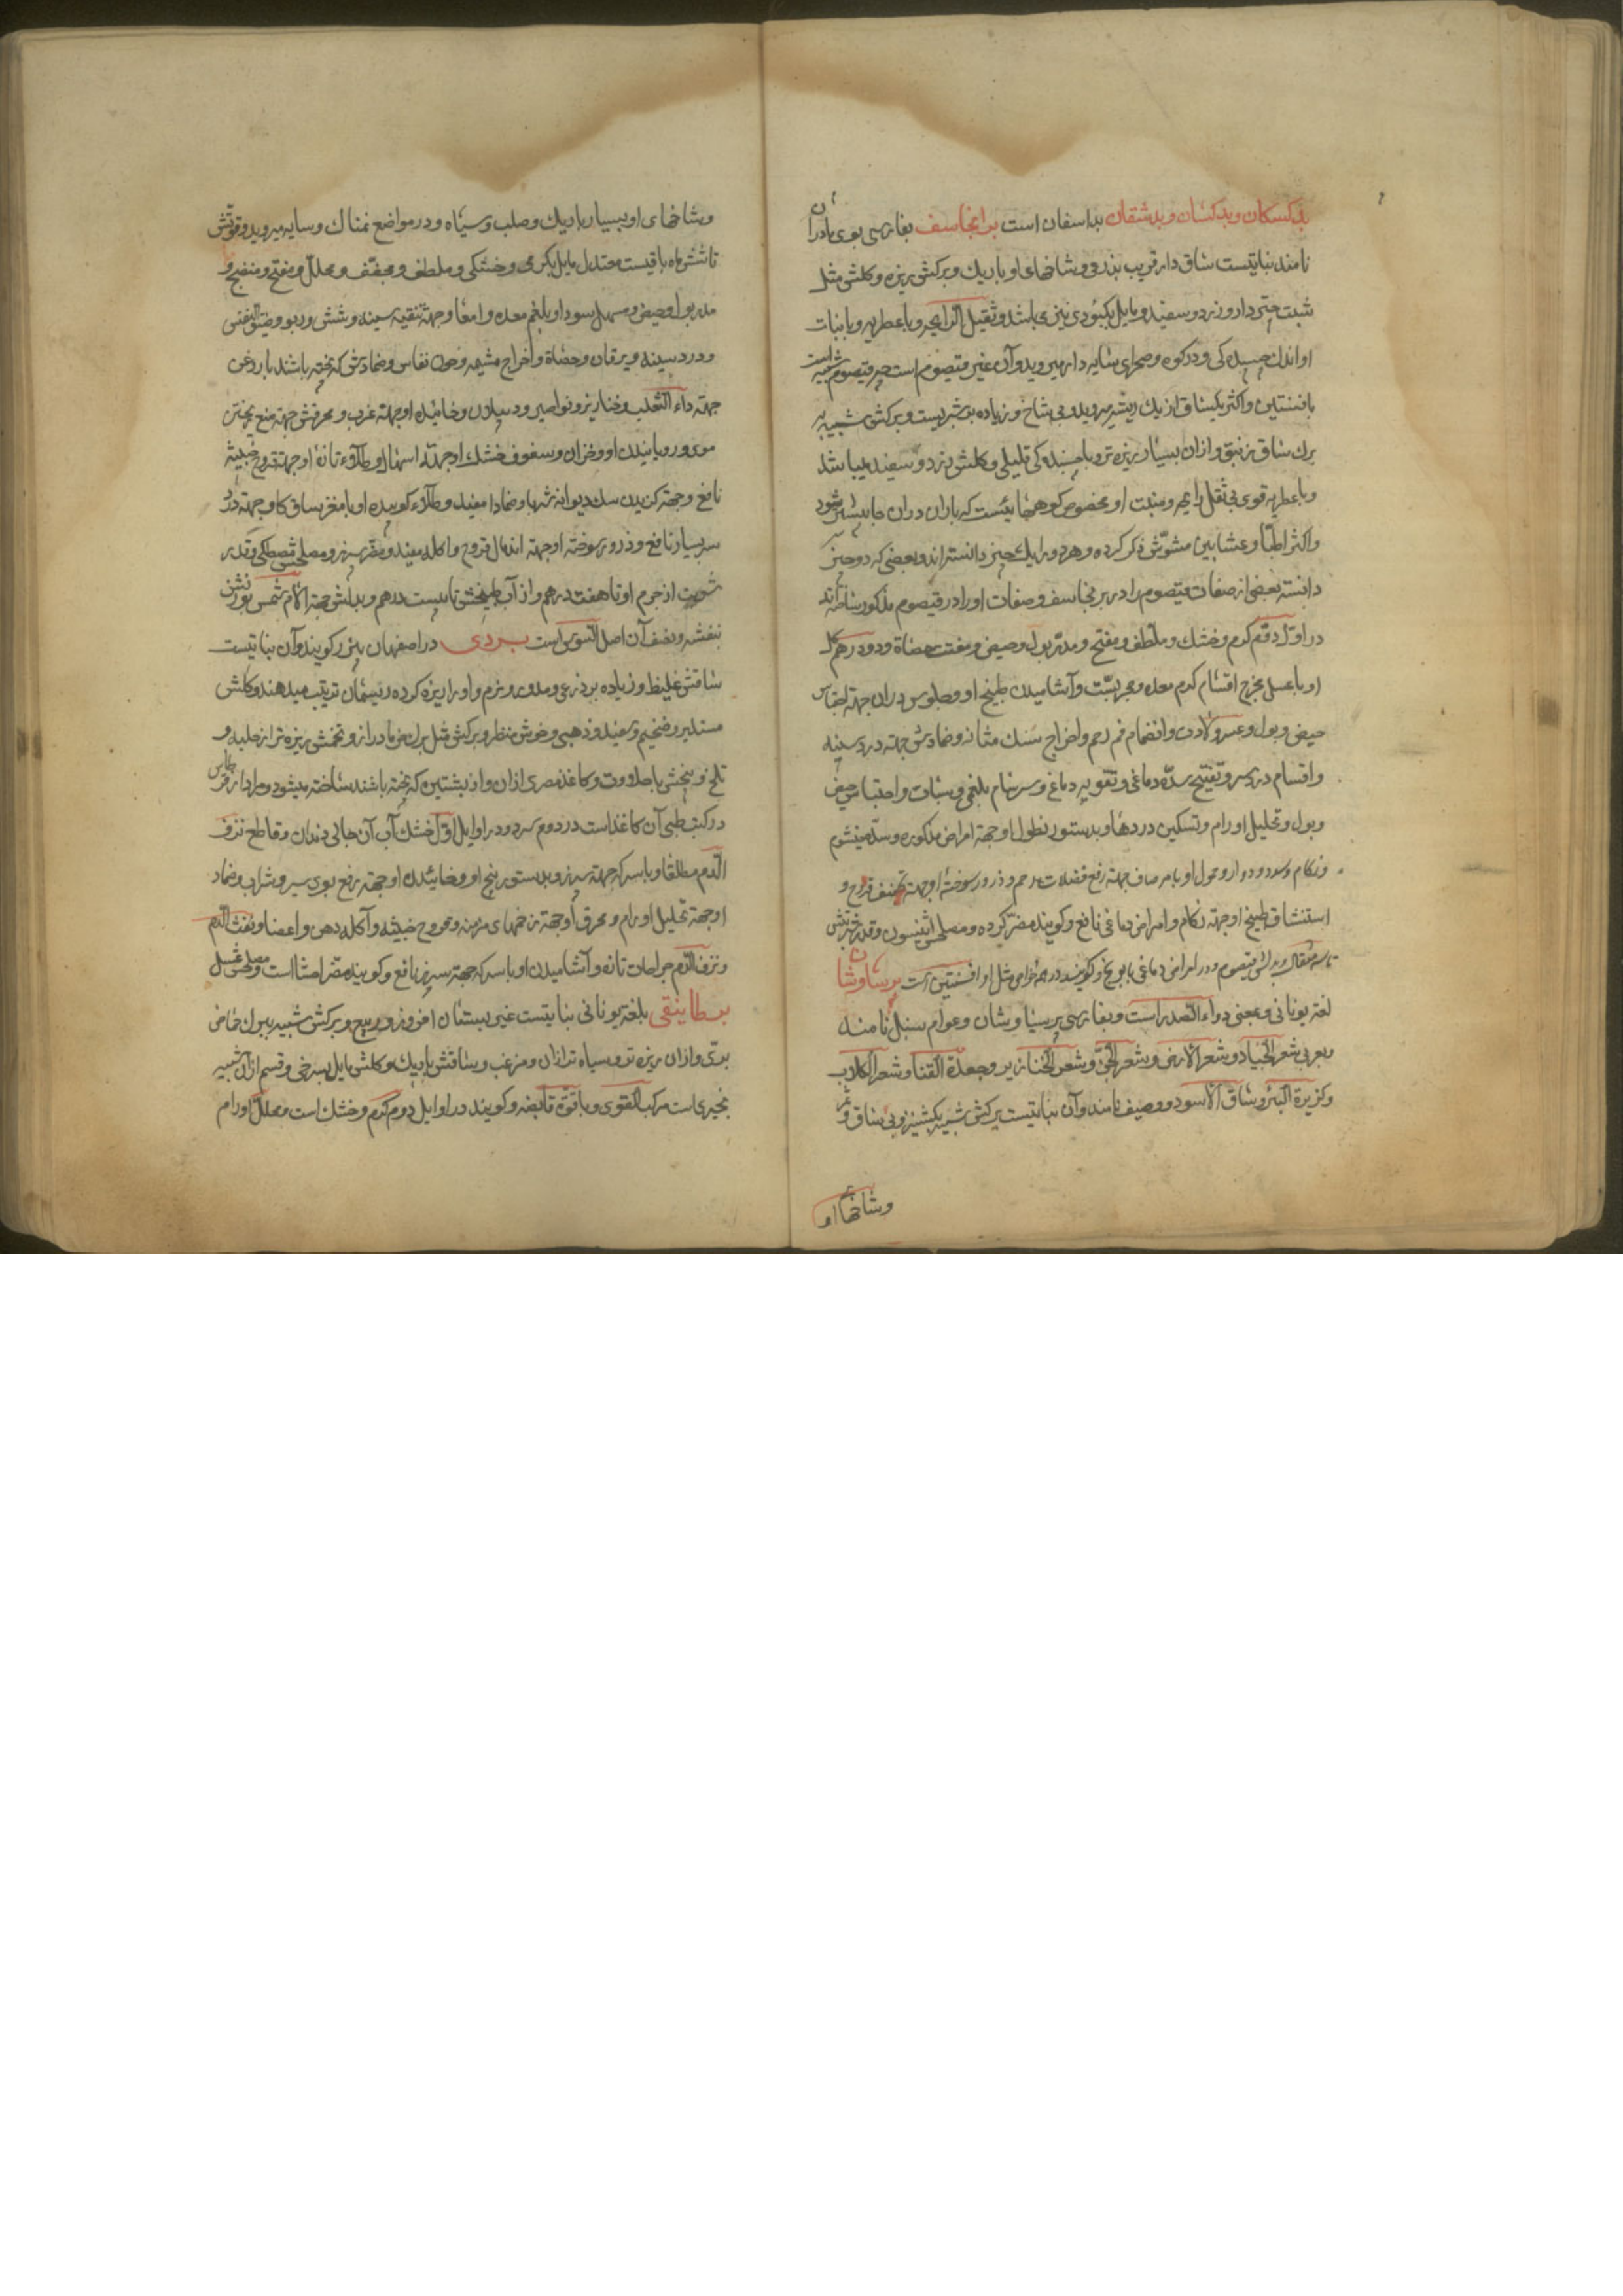 بدکسکان و بدکشان و بدشقان بداسفان است برنجاسف بفارسی بوی مادران
نامند نباتیست ساق دار قریب بذرعی و شاخهای او باریک و برکش ریزه و کلش مثل
شبت چتردار و زرد و سفید و مایل بکبودی نیز می باشد و ثقیل الرایحه و با عطریه و با نبات
او اندک چسبندکی و در کوه و صحرای سایه دار میروید و آن غیر قیصوم است چه قیصوم شبیه است
بافسنتین و اکثر یکساق از یک ریشه میروید و بی شاخ و زیاده بر شبریست و برکش شبیه به
برک ساق زنبق و ازان بسیار ریزه تر و با چسبندکی قلیلی و کلش زرد و سفید میباشد
و با عطریه قوی بی ثقل رایحه و منبت او مخصوص کوهها ئیست که باران دران جا بیشتر شود
و اکثر اطبا و عشابین مشوش ذکر کرده و هردو را یک چیز دانسته اند و بعضی که دو چیز
دانسته بعضی از صفات قیصوم را در برنجاسف و صفات او را در قیصوم مذکور ساخته اند
در اول دوم کرم و خشک و ملطف و مفتح و مدر بول و حیض و مفتت حصاة و دو درهم
او با عسل مخرج اقسام کرم معده و مجربست و آشامیدن طبیخ او و جلوس دران جهة احتباس
حیض و بول و عسر ولادت و انضمام فم رحم و اخراج سنک مثانه و ضمادش جهة درد سینه
و اقسام درد سر و تفتیح سده دماغی و تقویه دماغ و سرسام بلغمی و سبات و احتباس حیض
و بول و تحلیل اورام و تسکین دردها و بدستور نطول او جهة امراض مذکوره و سده خیشوم
و زکام و سدد و دوار و حمول او با مر صاف جهة رفع فضلات رحم و ذرور سوخته او جهة تجفیف قروح و
استنشاق طبیخ او جهة زکام و امراض دماغی نافع و کویند مضر کرده و مصلحش انیسون و قدر شربتش
تا سه مثقال و بدلش قیصوم و در امراض دماغی بابونج و کویند در همه خواص مثل او افسنتین است برسیاوشان
لغة یونانی و بمعنی دواء الصدر است و بفارسی پرسیاوشان و عوام سنبل نامند
و بعربی شعر الجیاد و شعر الارض و شعر الجن و شعر الخنازیر و جعدة القنا و شعر الکلاب
و کزبرة البئر و ساق الاسود و وصیف نامند و آن نباتیست برکش شبیه بکشنیز و بی ساق و ثمر
و شاخهای او
و شاخهای او بسیار باریک و صلب و سیاه و در مواضع نمناک و سایه میروید و قوتش
تا شش ماه باقیست معتدل مایل بکرمی و خشکی و ملطف و مجفف و محلل و مفتح و منضج و
مدر بول و حیض و مسهل سودا و بلغم معده و امعا و جهة تنقیه سینه و شش و ربو و ضیق النفس
و درد سینه و یرقان و حصاة و اخراج مشیمه و خون نفاس و ضمادش که پخته باشند با روغن
جهة داء الثعلب و خنازیر و نواصیر و دبیلات و خاییده او جهة غرب و محرقش جهة منع ریختن
موی و رویانیدن او و خزاز و سفوف خشک او جهة اسهال و طلاء تازه او جهة قروح خبیثه
نافع و جهة کزیدن سک دیوانه شربا و ضمادا مفید و طلاء کوبیده او با مغز ساق کاو جهة درد
سر بسیار نافع و ذرور سوخته او جهة اندمال قروح و اکله مفید و مضر سپرز و مصلحش مصطکی و قدر
شربت از جرم او تا هفت درهم و از آب طبیخش تا بیست درهم و بدلش جهة آلام شش بوزنش
بنفشه و نصف آن اصل السوس است بردی در اصفهان پیزر کویند و آن نباتیست
ساقش غلیظ و زیاده بر ذرعی و مدور و نرم و او را ریزه کرده ریسمان ترتیب میدهند و کلش
مستدیر و ضخیم و سفید و ذهبی و خوش منظر و برکش مثل برک خرما دراز و تخمش ریزه تر از حلبه و
تلخ و بیخش با حلاوت و کاغذ مصری ازان و از بشتین که پخته باشند ساخته میشود و مراد از قرطاس
در کتب طبی آن کاغذ است در دوم سرد و در اوایل اول خشک آب آن جالی دندان و قاطع نزف
الدم مطلقا و با سرکه جهة سپرز و بدستور بیخ او و خائیدن او جهة رفع بوی سیر و شراب و ضماد
او جهة تحلیل اورام و محرق او جهة زخمهای مزمنه و قروح خبیثه و آکله دهن و اعضا و نفث الدم
و نزف الدم جراحات تازه و آشامیدن او با سرکه جهة سپرز نافع و کویند مضر احشا است و مصلحش عسل
برطانیقی بلغة یونانی نباتیست غیر بستان افروز و ربیع و برکش شبیه ببرک حماض
بری و ازان ریزه تر و سیاه تر ازان و مزغب و ساقش باریک و کلش مایل بسرخی و قسم از آن شبیه
بخیری است مرکب القوی و با قوة قابضه و کویند در اوایل دوم کرم و خشک است و محلل اورام